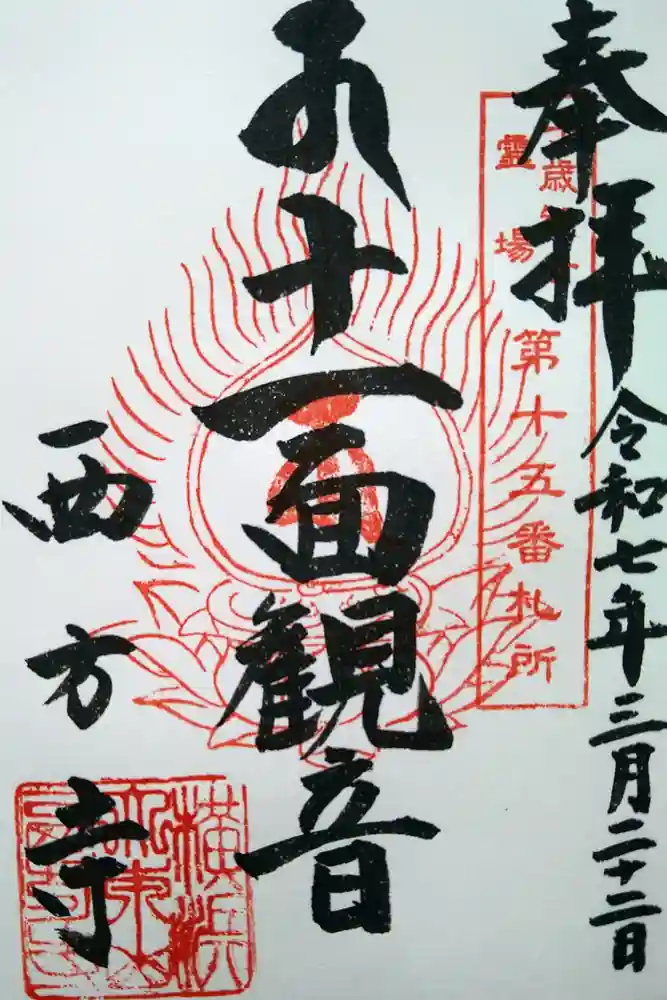 奉拝
令和七年三月二十二日
霊場
第十五番札所
十一面観音
西方寺
横浜